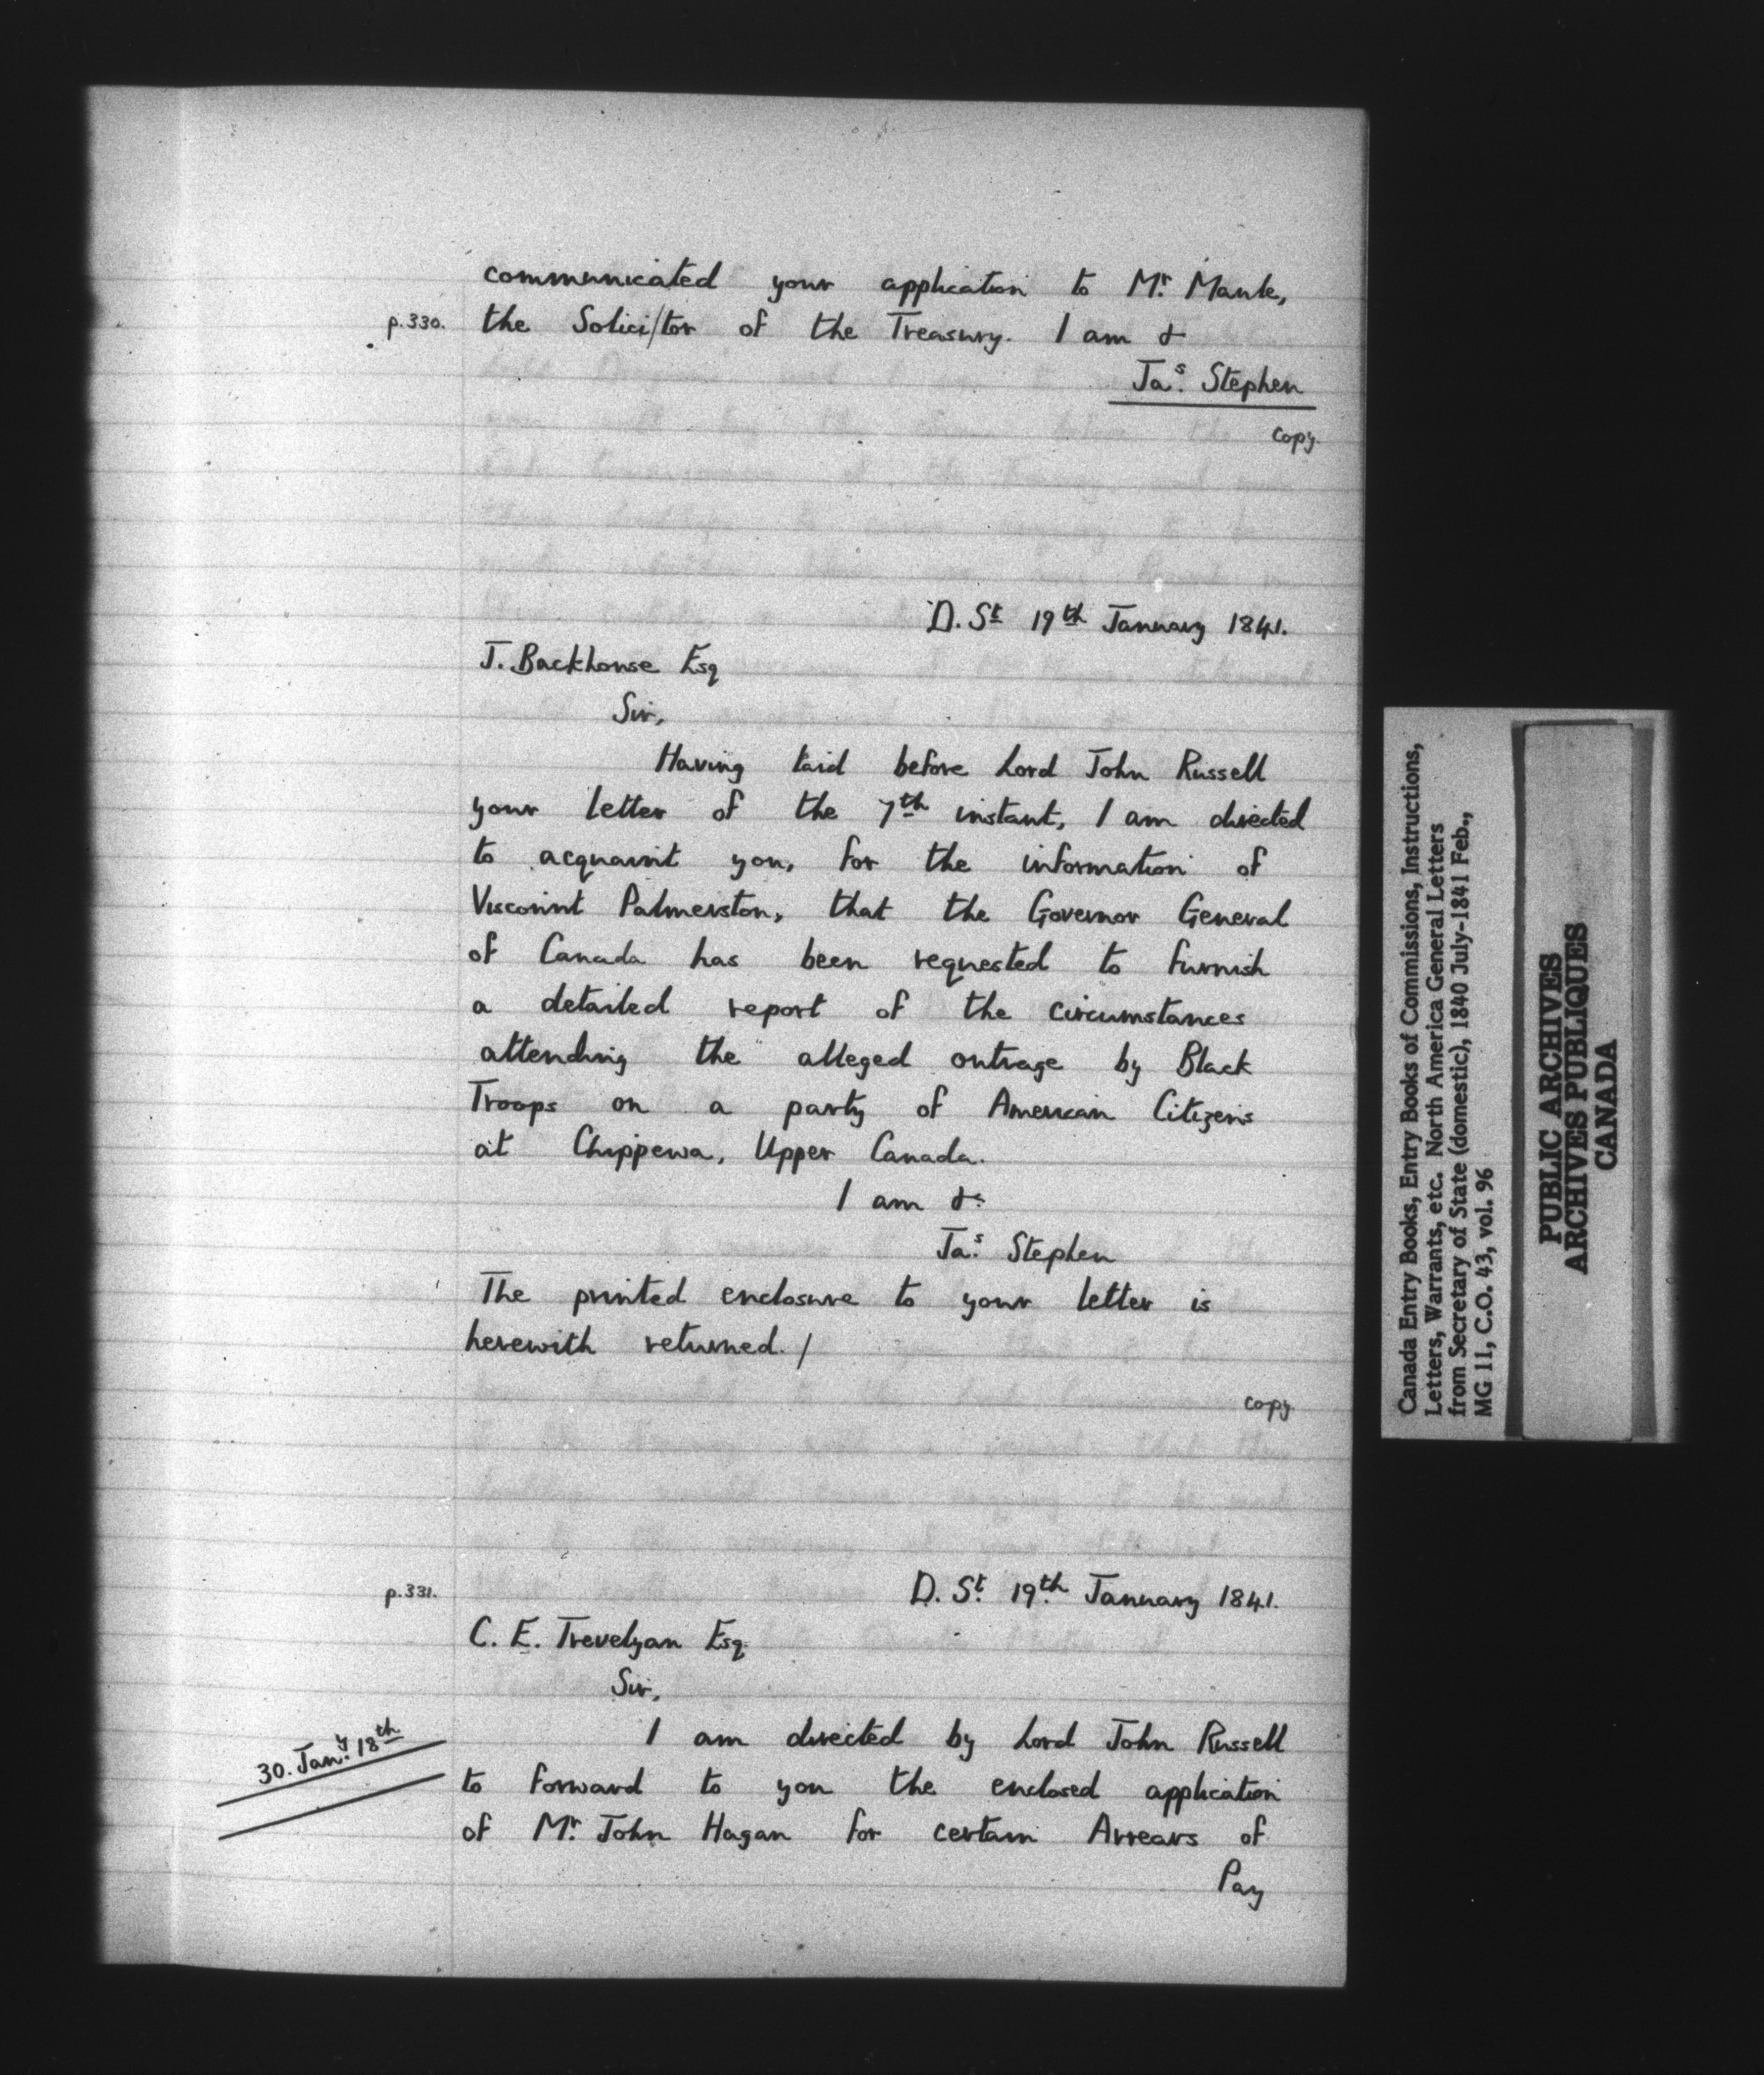 communicated your application to Mr. Maule,
p.330. the Solici/tor of the Treasury. I am &
Jas. Stephen
copy.
D. St 19th January 1841.
J. Backhouse Esq
Sir,
Having laid before Lord John Russell
your letter of the 7th instant, I am directed
to acquaint you, for the information of
Viscount Palmerston, that the Governor General
of Canada has been requested to furnish
a detailed report of the circumstances
attending the alleged outrage by Black
Troops on a party of American Citizens
at Chippewa, Upper Canada.
I am &c
Jas. Stephen
The printed enclosure to your letter is
herewith returned./
copy.
p.331. D. St. 19th. January 1841.
C. E. Trevelyan Esq.
Sir,
I am directed by Lord John Russell
30. Jany. 18th
to forward to you the enclosed application
of Mr. John Hagan for certain Arrears of
Pay
Canada Entry Books, Entry Books of Commissions, Instructions,
Letters, Warrants, etc. North America General Letters
from Secretary of State (domestic), 1840 July-1841 Feb.,
MG 11, C.O. 43, vol. 96
PUBLIC ARCHIVES
ARCHIVES PUBLIQUES
CANADA